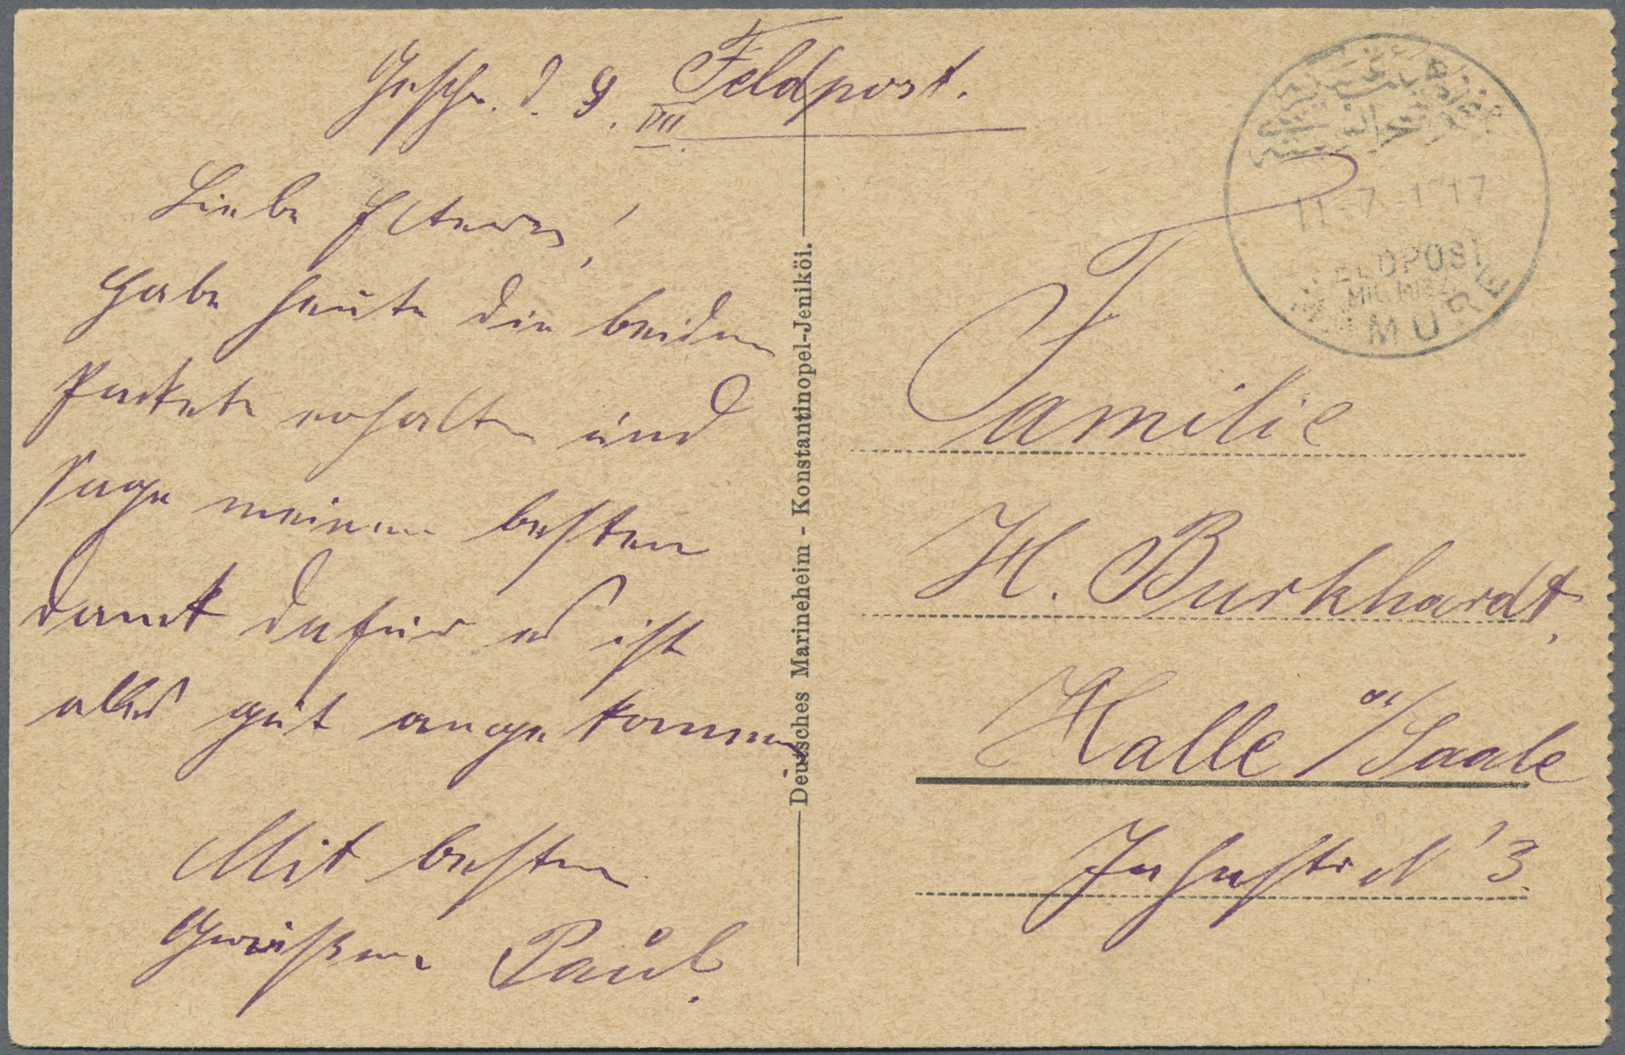 Geschr. d. 9. VII. Feldpost.
Liebe Eltern!
Habe heute die beiden
Pakete erhalten und
sage meinen besten
Dank dafür es ist
alles gut angekommen.
Mit besten
Grüßen Paul.
Deutsches Marineheim - Konstantinopel-Jeniköi.
11-7-17
FELDPOST
MIL. MISS.
MAMURE
Familie
H. Burkhardt,
Halle a/Saale
N 3.